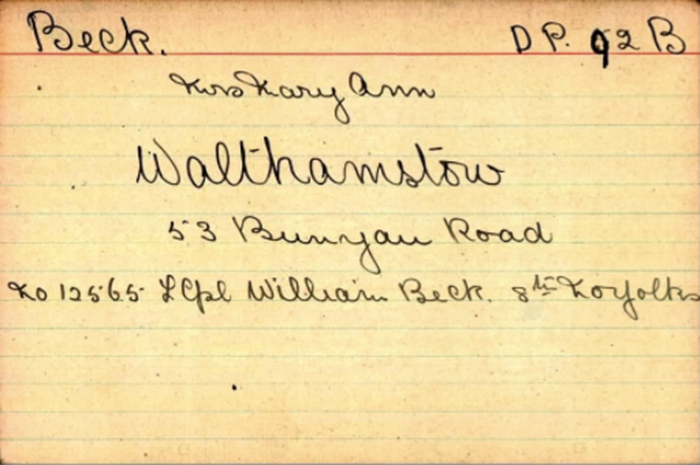 Beck. D P. 92 B
Mrs Mary Ann
Walthamstow
53 Bunyan Road
No 12565 LCpl William Beck. 8th Norfolks